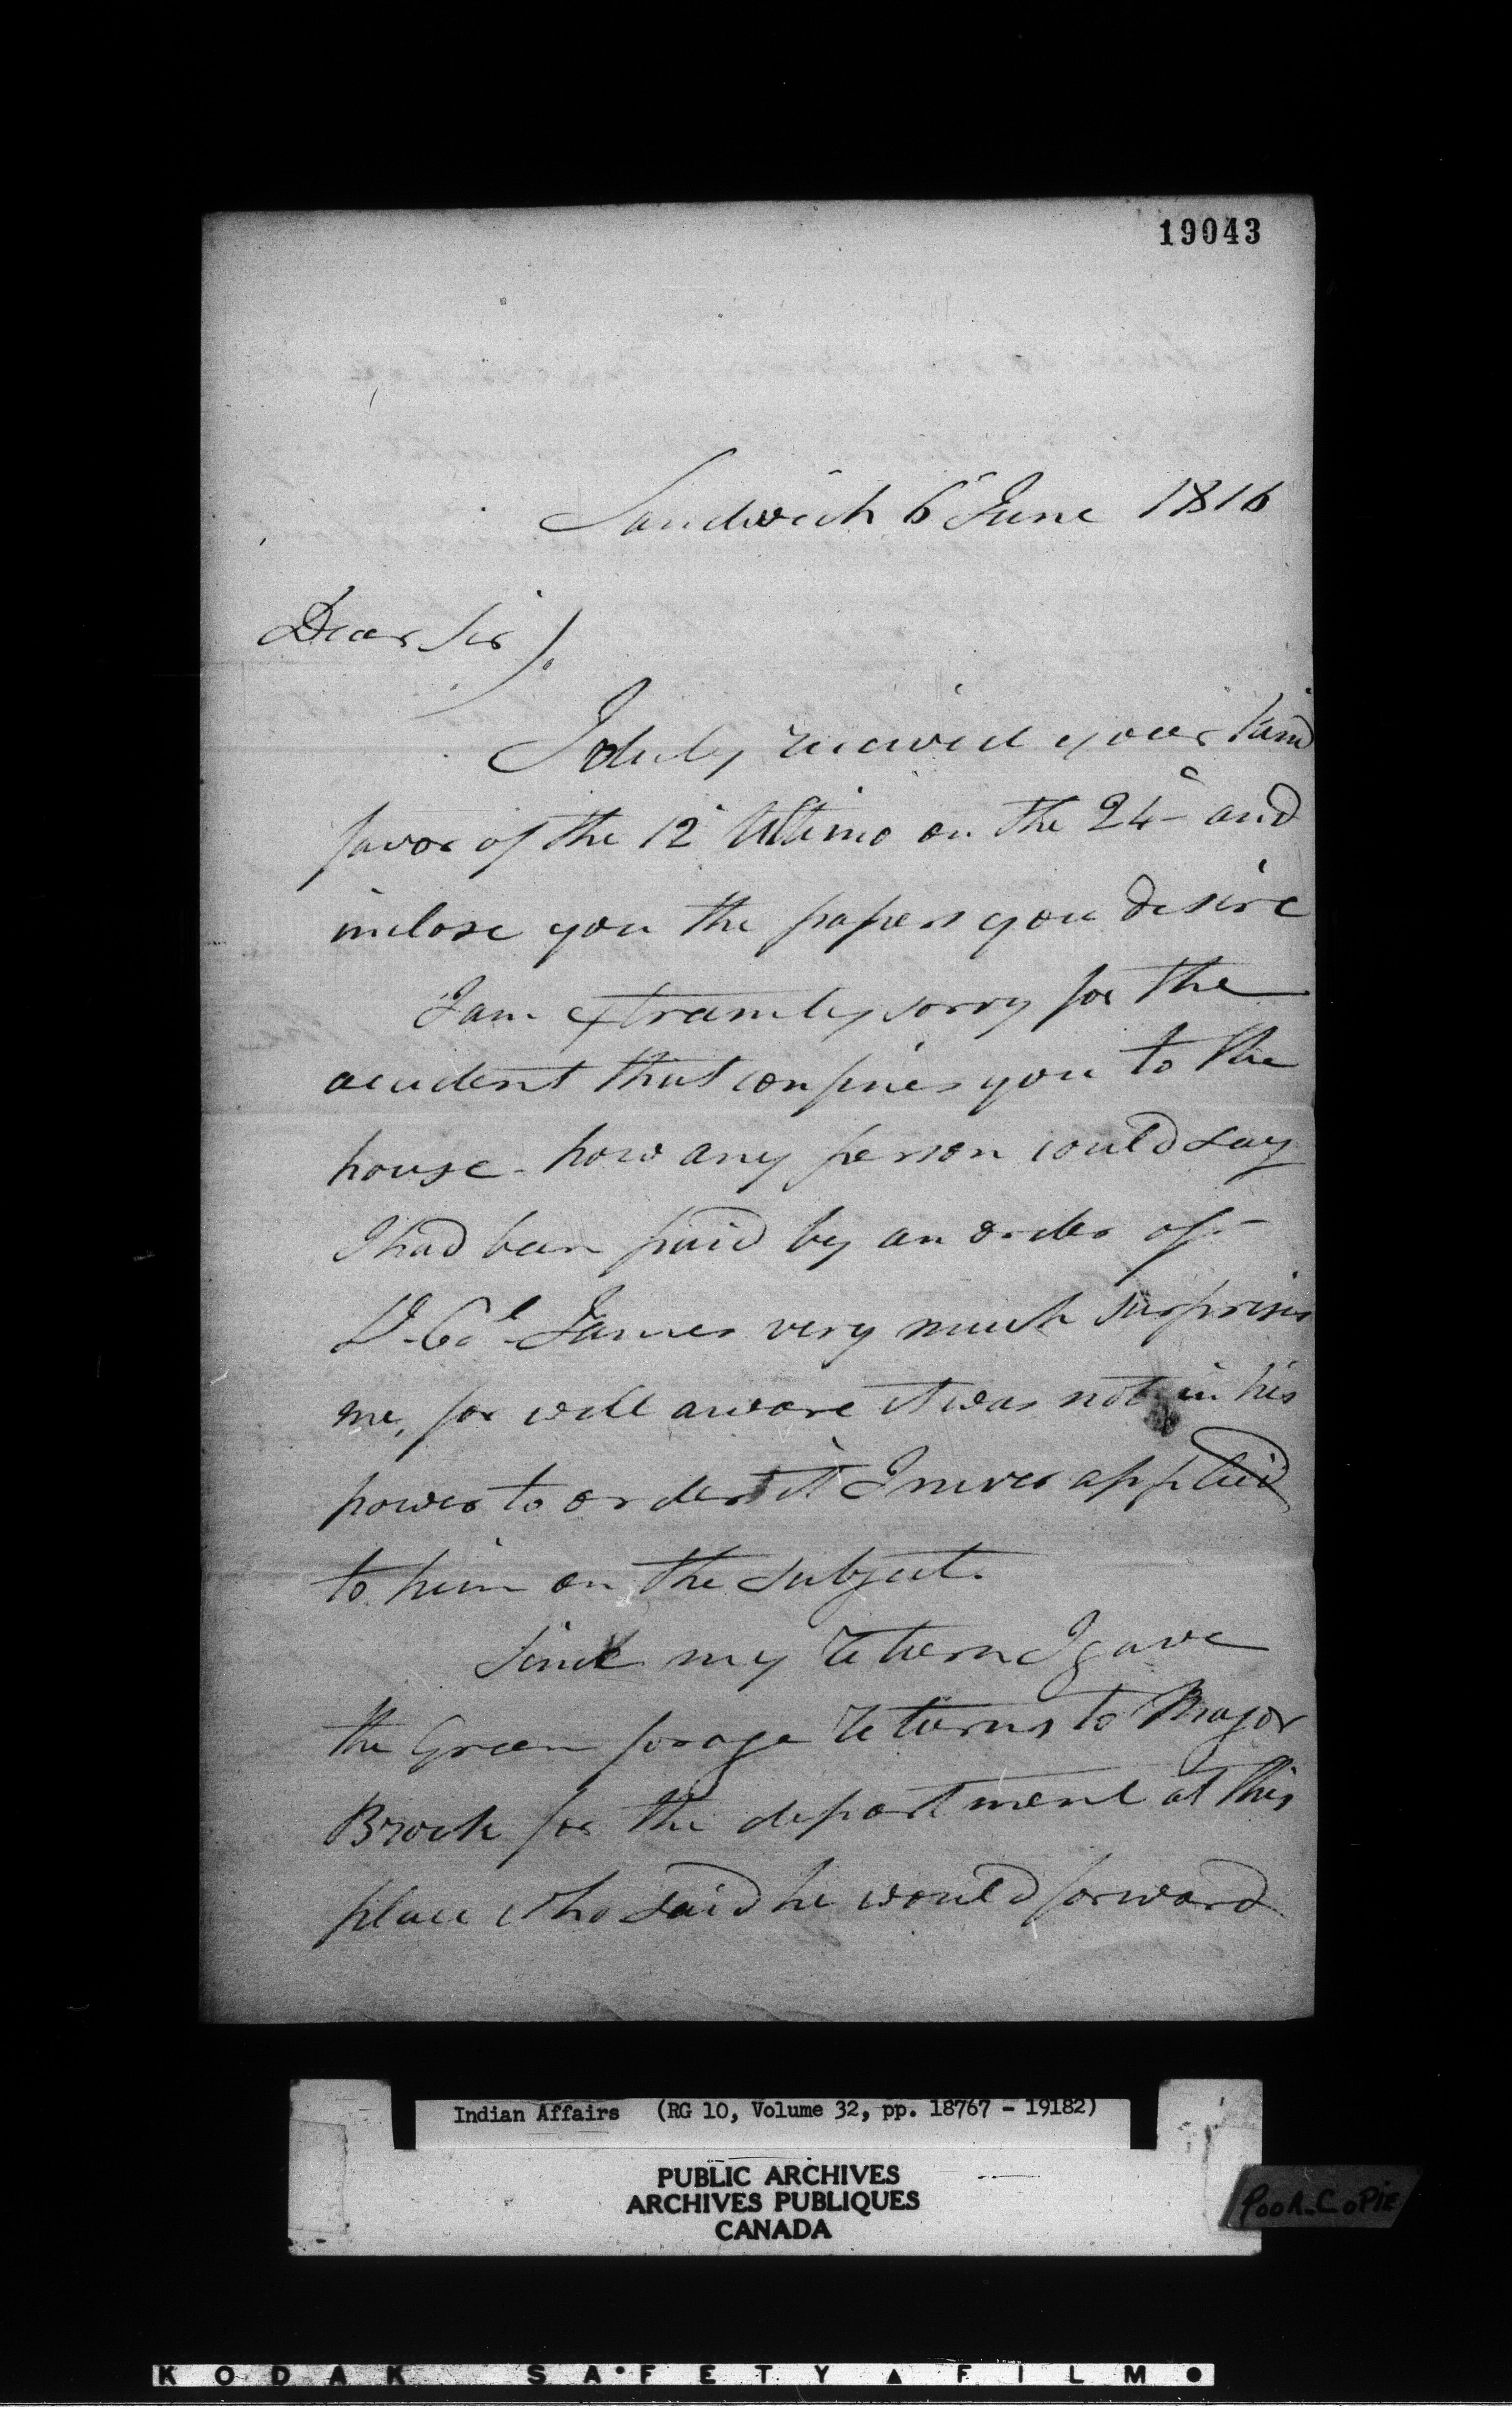 19043
Sandwich 6 June 1816
Dear Sir
I duly received your kind
favor of the 12 Ultimo on the 24 and
inclose you the papers you desire
I am extramly sorry for the
accident that confines you to the
house - how any person could say
I had been paid by an order of
Lt. Col. James very much surprises
me, for well aware it was not in his
power to order it I never applied
to him on the subject.
Since my return I gave
the Green forage returns to Major
Brock for the department at this
place who said he would forward
Indian Affairs (RG 10, Volume 32, pp. 18767 - 19182)
PUBLIC ARCHIVES
ARCHIVES PUBLIQUES
CANADA
POOR COPIE
KODAK SAFETY FILM